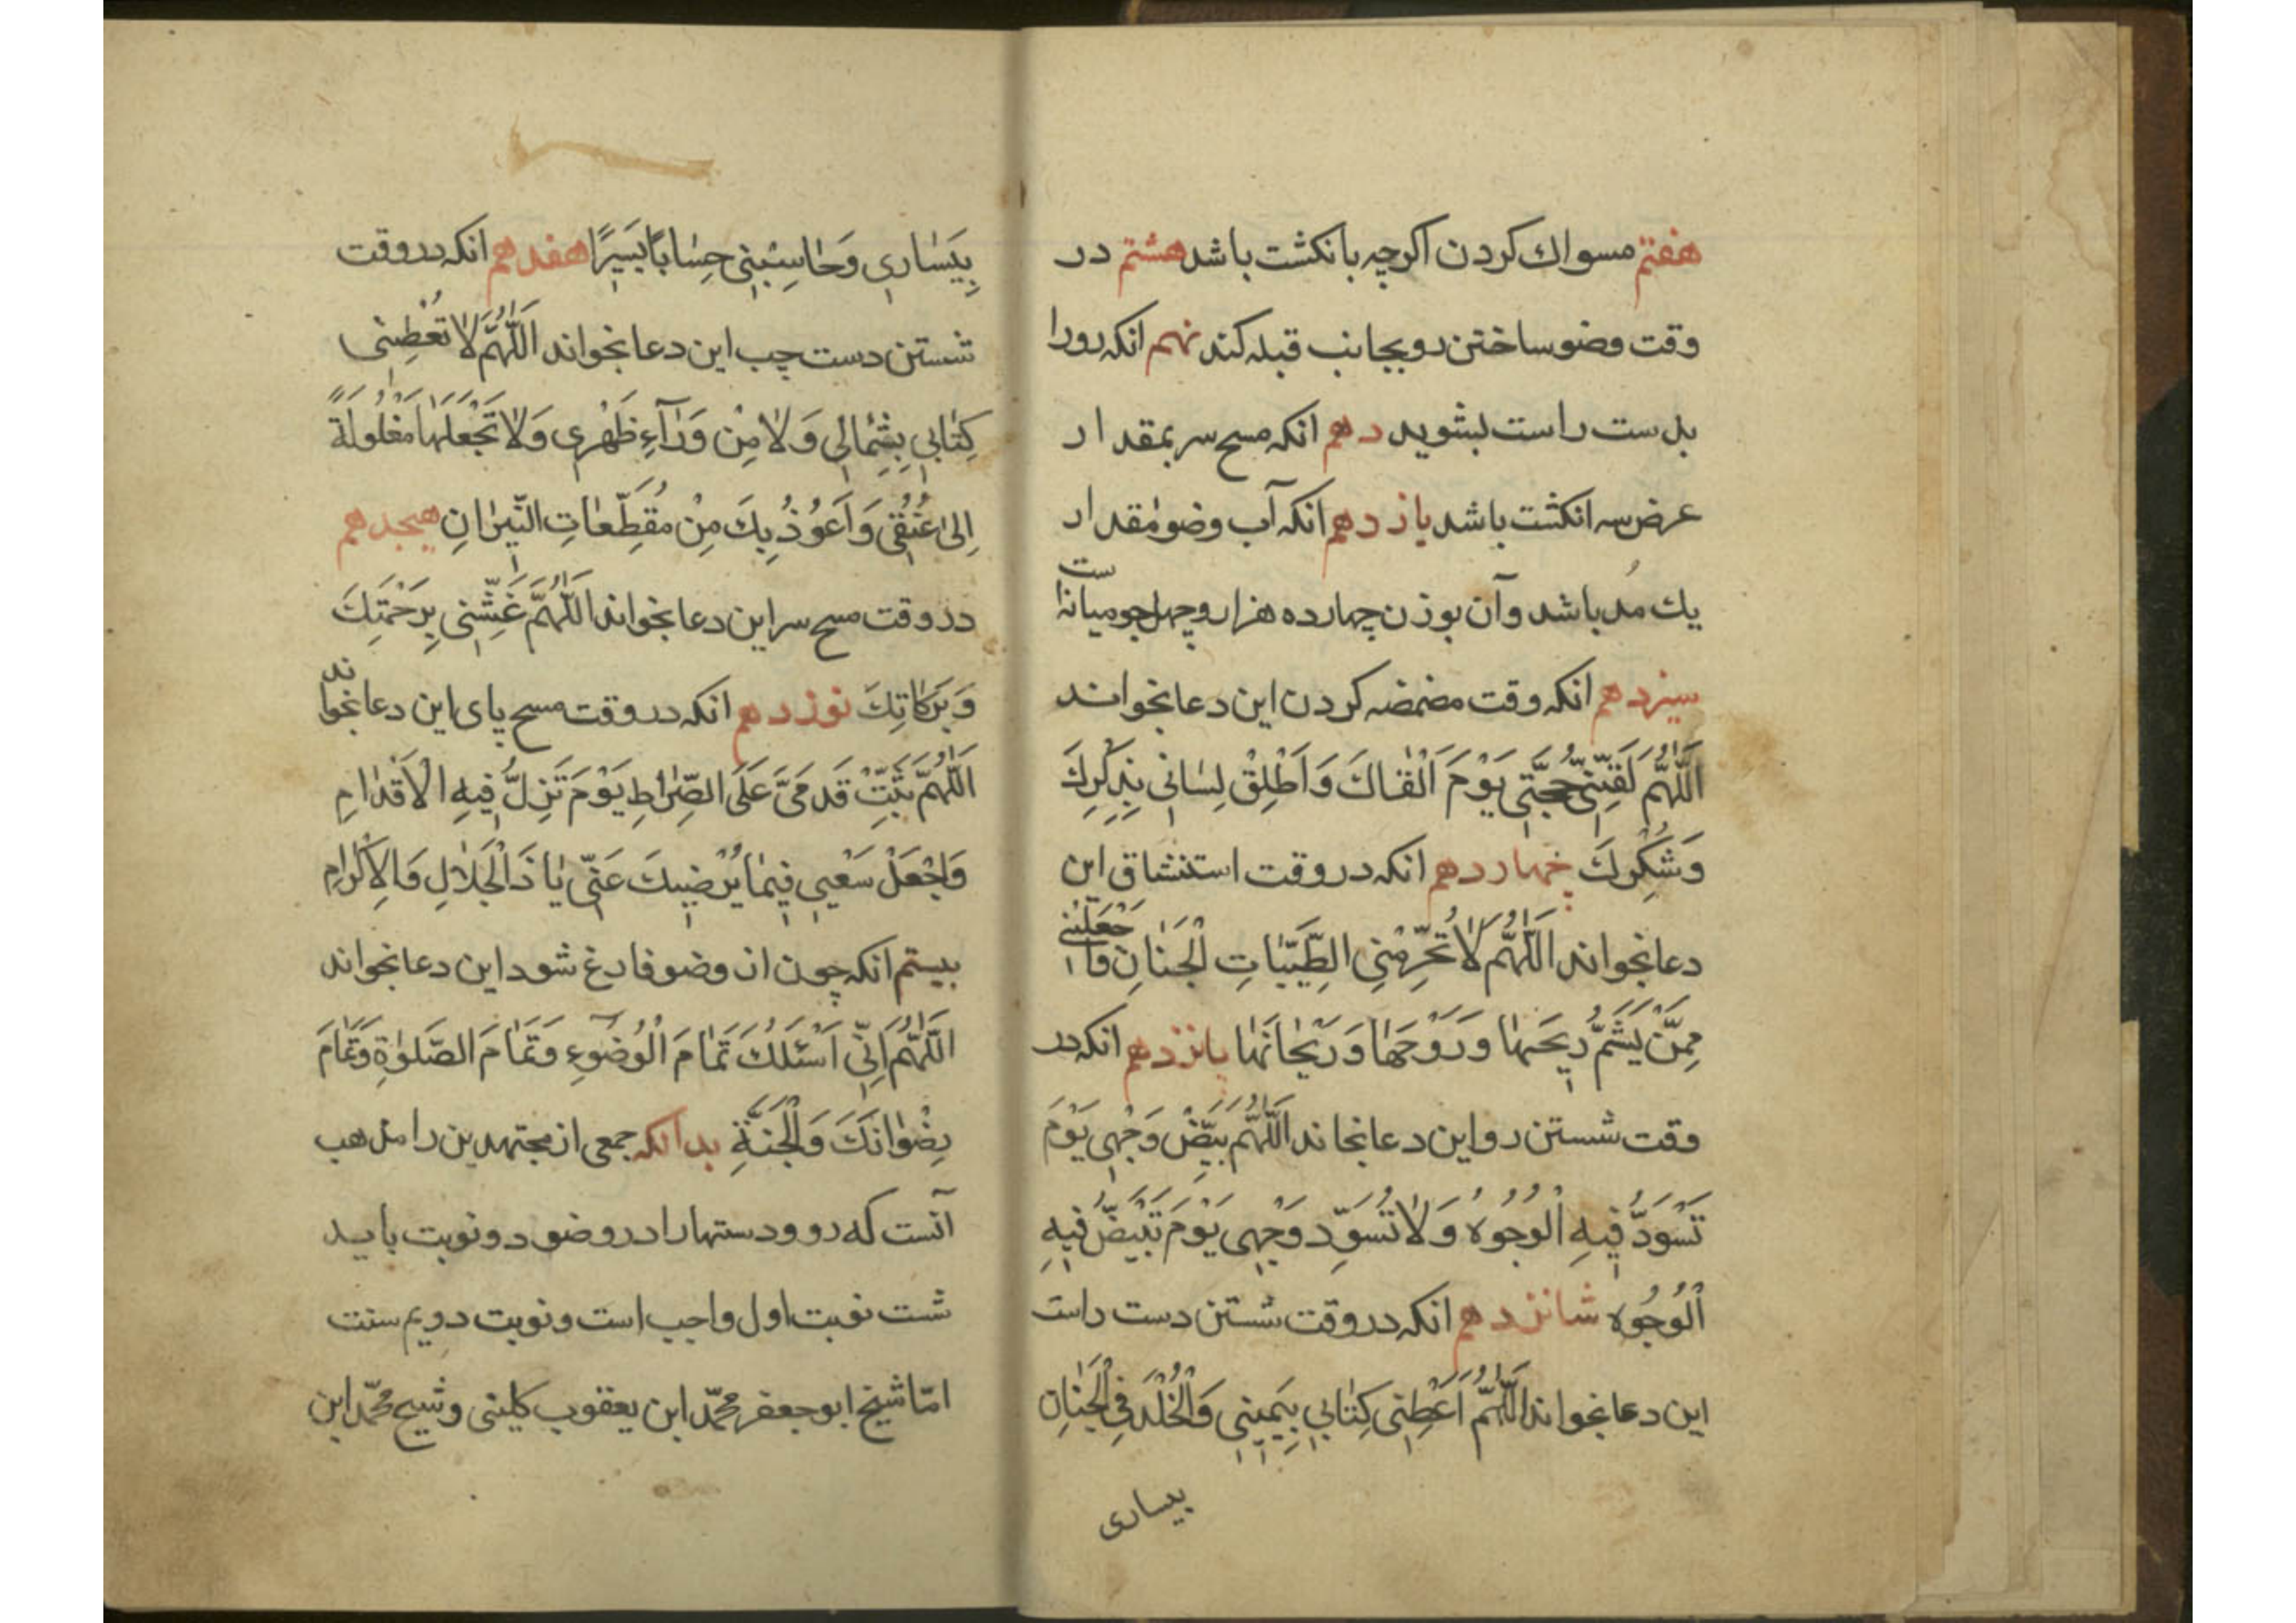 هفتم مسواك كردن اكرچه بانكشت باشد هشتم در
وقت وضو ساختن رو بجانب قبله كند نهم انكه رو را
بدست راست بشويد دهم انكه مسح سر بمقدار
عرض سه انكشت باشد يازدهم انكه آب وضو مقدار
يك مُد باشد وآن بوزن چهارده هزار و چهل جو ميانه است
سيزدهم انكه وقت مضمضه كردن اين دعا بخواند
اَللّٰهُمَّ لَقِنّنِي حُجَّتي يَوْمَ اَلْقٰاكَ وَاَطْلِقْ لِسٰاني بِذِكْرِكَ
وَشُكْرِكَ چهاردهم انكه در وقت استنشاق اين
دعا بخواند اَللّٰهُمَّ لاٰ تُحَرِّمْنِي الطَّيِّبٰاتِ الْجَنٰانِ وَاجْعَلْنٖي
مِمَّنْ يَشَمُّ رِيحَهٰا وَرَوْحَهٰا وَرَيْحٰانَهٰا پانزدهم انكه در
وقت شستن رو اين دعا بخاند اَللّٰهُمَّ بَيِّضْ وَجْهِي يَوْمَ
تَسْوَدُّ فِيهِ الْوُجُوهُ وَلاٰ تُسَوِّدْ وَجْهِي يَوْمَ تَبْيَضُّ فِيهِ
الْوُجُوه شانزدهم انكه در وقت شستن دست راست
اين دعا بخواند اَللّٰهُمَّ اَعْطِنِي كِتٰابِي بِيَمِينِي وَالْخُلْدَ فِي الْجَنٰانِ
بيسارى
بِيَسٰارِي وَحٰاسِبْنِي حِسٰابًا يَسِيرًا هفدهم انكه در وقت
شستن دست چپ اين دعا بخواند اَللّٰهُمَّ لاٰ تُعْطِنِي
كِتٰابِي بِشِمٰالِي وَلاٰ مِنْ وَرٰآءِ ظَهْرِي وَلاٰ تَجْعَلَهٰا مَغْلُولَةً
اِلىٰ عُنُقِي وَاَعُوذُ بِكَ مِنْ مُقَطِّعٰاتِ النّيرٰانِ هيجدهم
در وقت مسح سر اين دعا بخواند اَللّٰهُمَّ غَشِّنِي بِرَحْمَتِكَ
وَبَرَكٰاتِكَ نوزدهم انكه در وقت مسح پاى اين دعا بخواند
اَللّٰهُمَّ ثَبِّتْ قَدَمَيَّ عَلَى الصِّرٰاطِ يَوْمَ تَزِلُّ فِيهِ الْاَقْدٰامِ
وَاجْعَلْ سَعْيِي فِيمٰا يُرْضِيكَ عَنّي يٰا ذَالْجَلاٰلِ وَالْاِكْرٰامِ
بيستم انكه چون از وضو فارغ شود اين دعا بخواند
اَللّٰهُمَّ اِنّي اَسْئَلُكَ تَمٰامَ الْوُضُوءِ وَتَمٰامَ الصَّلوٰةِ وَتَمٰامَ
رِضْوٰانَكَ وَالْجَنَّةِ بدانكه جمعى از مجتهدين را مذهب
آنست كه رو و دستها را در وضو دو نوبت بايد
شست نوبت اول واجب است و نوبت دويم سنت
امّا شيخ ابو جعفر محمّد ابن يعقوب كلينى و شيخ محمّد ابن